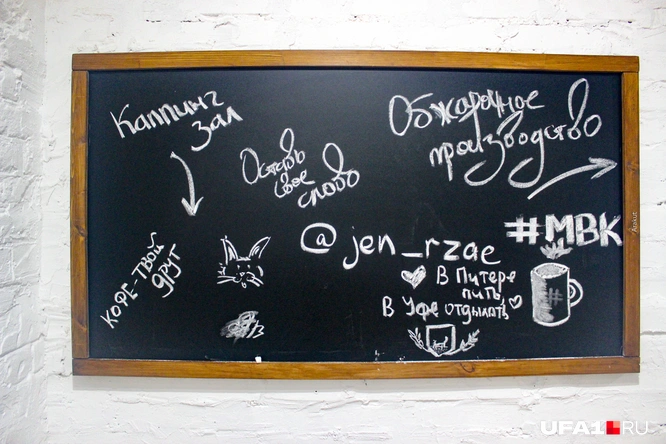 Каппинг
зал
Оставь
свое
слово
Обжарочное
производство
#МВК
@jen_rzae
В Питере
пить,
В Уфе отдыхать
кофе-твой
друг
UFA1.RU